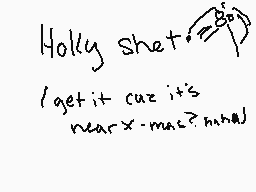 Holly shet.
I get it cuz it's
near x-mas? hahaa